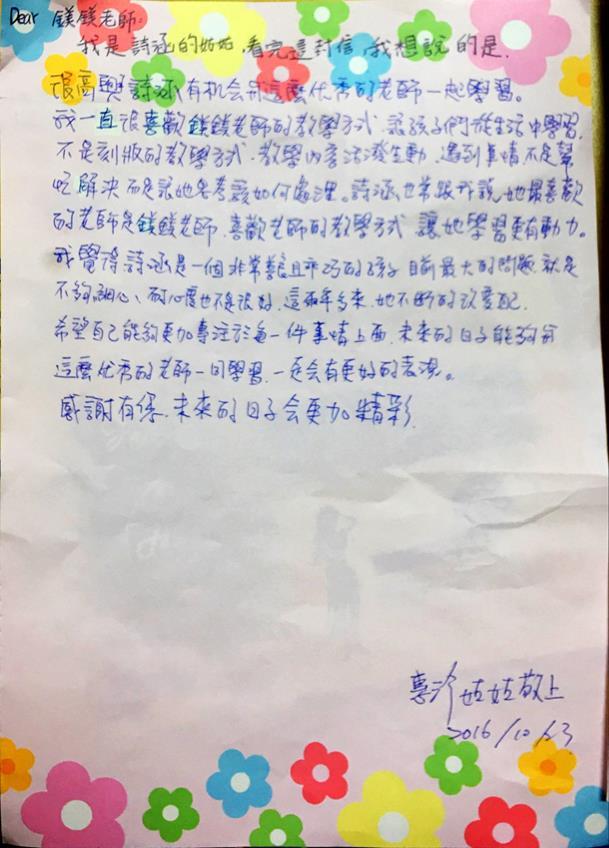 Dear 鎂鎂老師:
我是詩涵的姑姑,看完這封信,我想說的是,
很高興詩涵有机会和這麼优秀的老師一起學習。
我一直很喜歡鎂鎂老師的教學方式,讓孩子們從生活中學習,
不是刻版的教學方式,教學內容活潑生動,遇到事情不是幫
忙解決而是讓她思考該如何處理。詩涵也常跟我說,她最喜歡
的老師是鎂鎂老師,喜歡老師的教學方式讓她學習更有動力。
我覺得詩涵是一個非常善良且乖巧的孩子目前最大的問題就是
不夠細心、耐心度也不是很好,這兩年多來,她不斷的改變
希望自己能夠更加專注於每一件事情上面,未來的日子能夠和
這麼优秀的老師一同學習,一定会有更好的表現。
感謝有你,未來的日子会更加精彩
姑姑敬上
2016/10/23